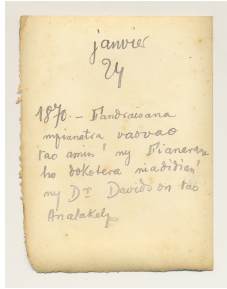 janvier
24
1870. – Fandraisana
mpianatra vaovao
tao amin' ny Fianarana
ho dokotera niadidian'
ny Dr Davidson tao
Analakely